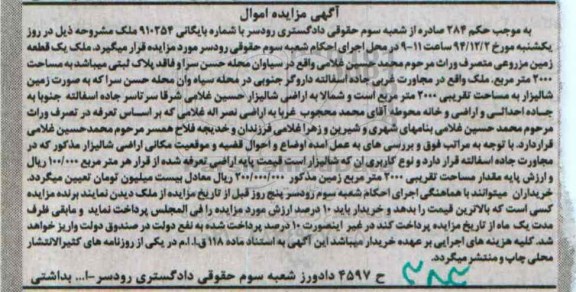 آگهی مزایده اموال
به موجب حکم 284 صادره از شعبه سوم حقوقی دادگستری رودسر با شماره بایگانی 910254 ملک مشروحه ذیل در روز
یکشنبه مورخ 94/12/2 ساعت 11-9 در محل اجرای احکام شعبه سوم حقوقی رودسر مورد مزایده قرار میگیرد. ملک یک قطعه
زمین مزروعی متصرف وراث مرحوم محمد حسین غلامی واقع در سیاوان محله حسن سرا و فاقد پلاک ثبتی میباشد به مساحت
2000 متر مربع. ملک واقع در مجاورت غربی جاده اسفالته داروگر جنوبی در محله سیاه وان محله حسن سرا که به صورت زمین
شالیزار به مساحت تقریبی 2000 متر مربع است و شمالا به اراضی شالیزار حسین غلامی شرقا سرتاسر جاده اسفالته جنوبا به
جاده احداثی و اراضی و خانه محوطه آقای محمد محجوب غربا به اراضی نصر اله غلامی که بر اساس تعرفه در تصرف وراث
مرحوم محمد حسین غلامی بنامهای شهری و شیرین و زهرا غلامی فرزندان و خدیجه فلاح همسر مرحوم محمدحسین غلامی
قراردارد. با توجه به مراتب فوق و بررسی های به عمل امده اوضاع و احوال قضیه و موقعیت مکانی اراضی شالیزار مذکور که در
مجاورت جاده اسفالته قرار دارد و نوع کاربری ان که شالیزار است قیمت پایه اراضی تعرفه شده از قرار هر متر مربع 100/000 ریال
و ارزش پایه مقدار مساحت تقریبی 2000 متر مربع زمین مذکور 200/000/000 ریال معادل بیست میلیون تومان تعیین میگردد.
خریداران میتوانند با هماهنگی اجرای احکام شعبه سوم رودسر پنج روز قبل از تاریخ مزایده از ملک دیدن نمایند برنده مزایده
کسی است که بالاترین قیمت را بدهد و خریدار باید 10 درصد ارزش مورد مزایده را فی المجلس پرداخت نماید و مابقی ظرف
مدت یک ماه از تاریخ مزایده پرداخت کند در غیر اینصورت 10 درصد پرداخت شده به نفع دولت در صندوق دولت واریز خواهد
شد. کلیه هزینه های اجرایی بر عهده خریدار میباشد این آگهی به استناد ماده 118 ق.ا.ا.م در یکی از روزنامه های کثیرالانتشار
محلی چاپ و منتشر میگردد.
ح 4597 دادورز شعبه سوم حقوقی دادگستری رودسر-ا... بداشتی